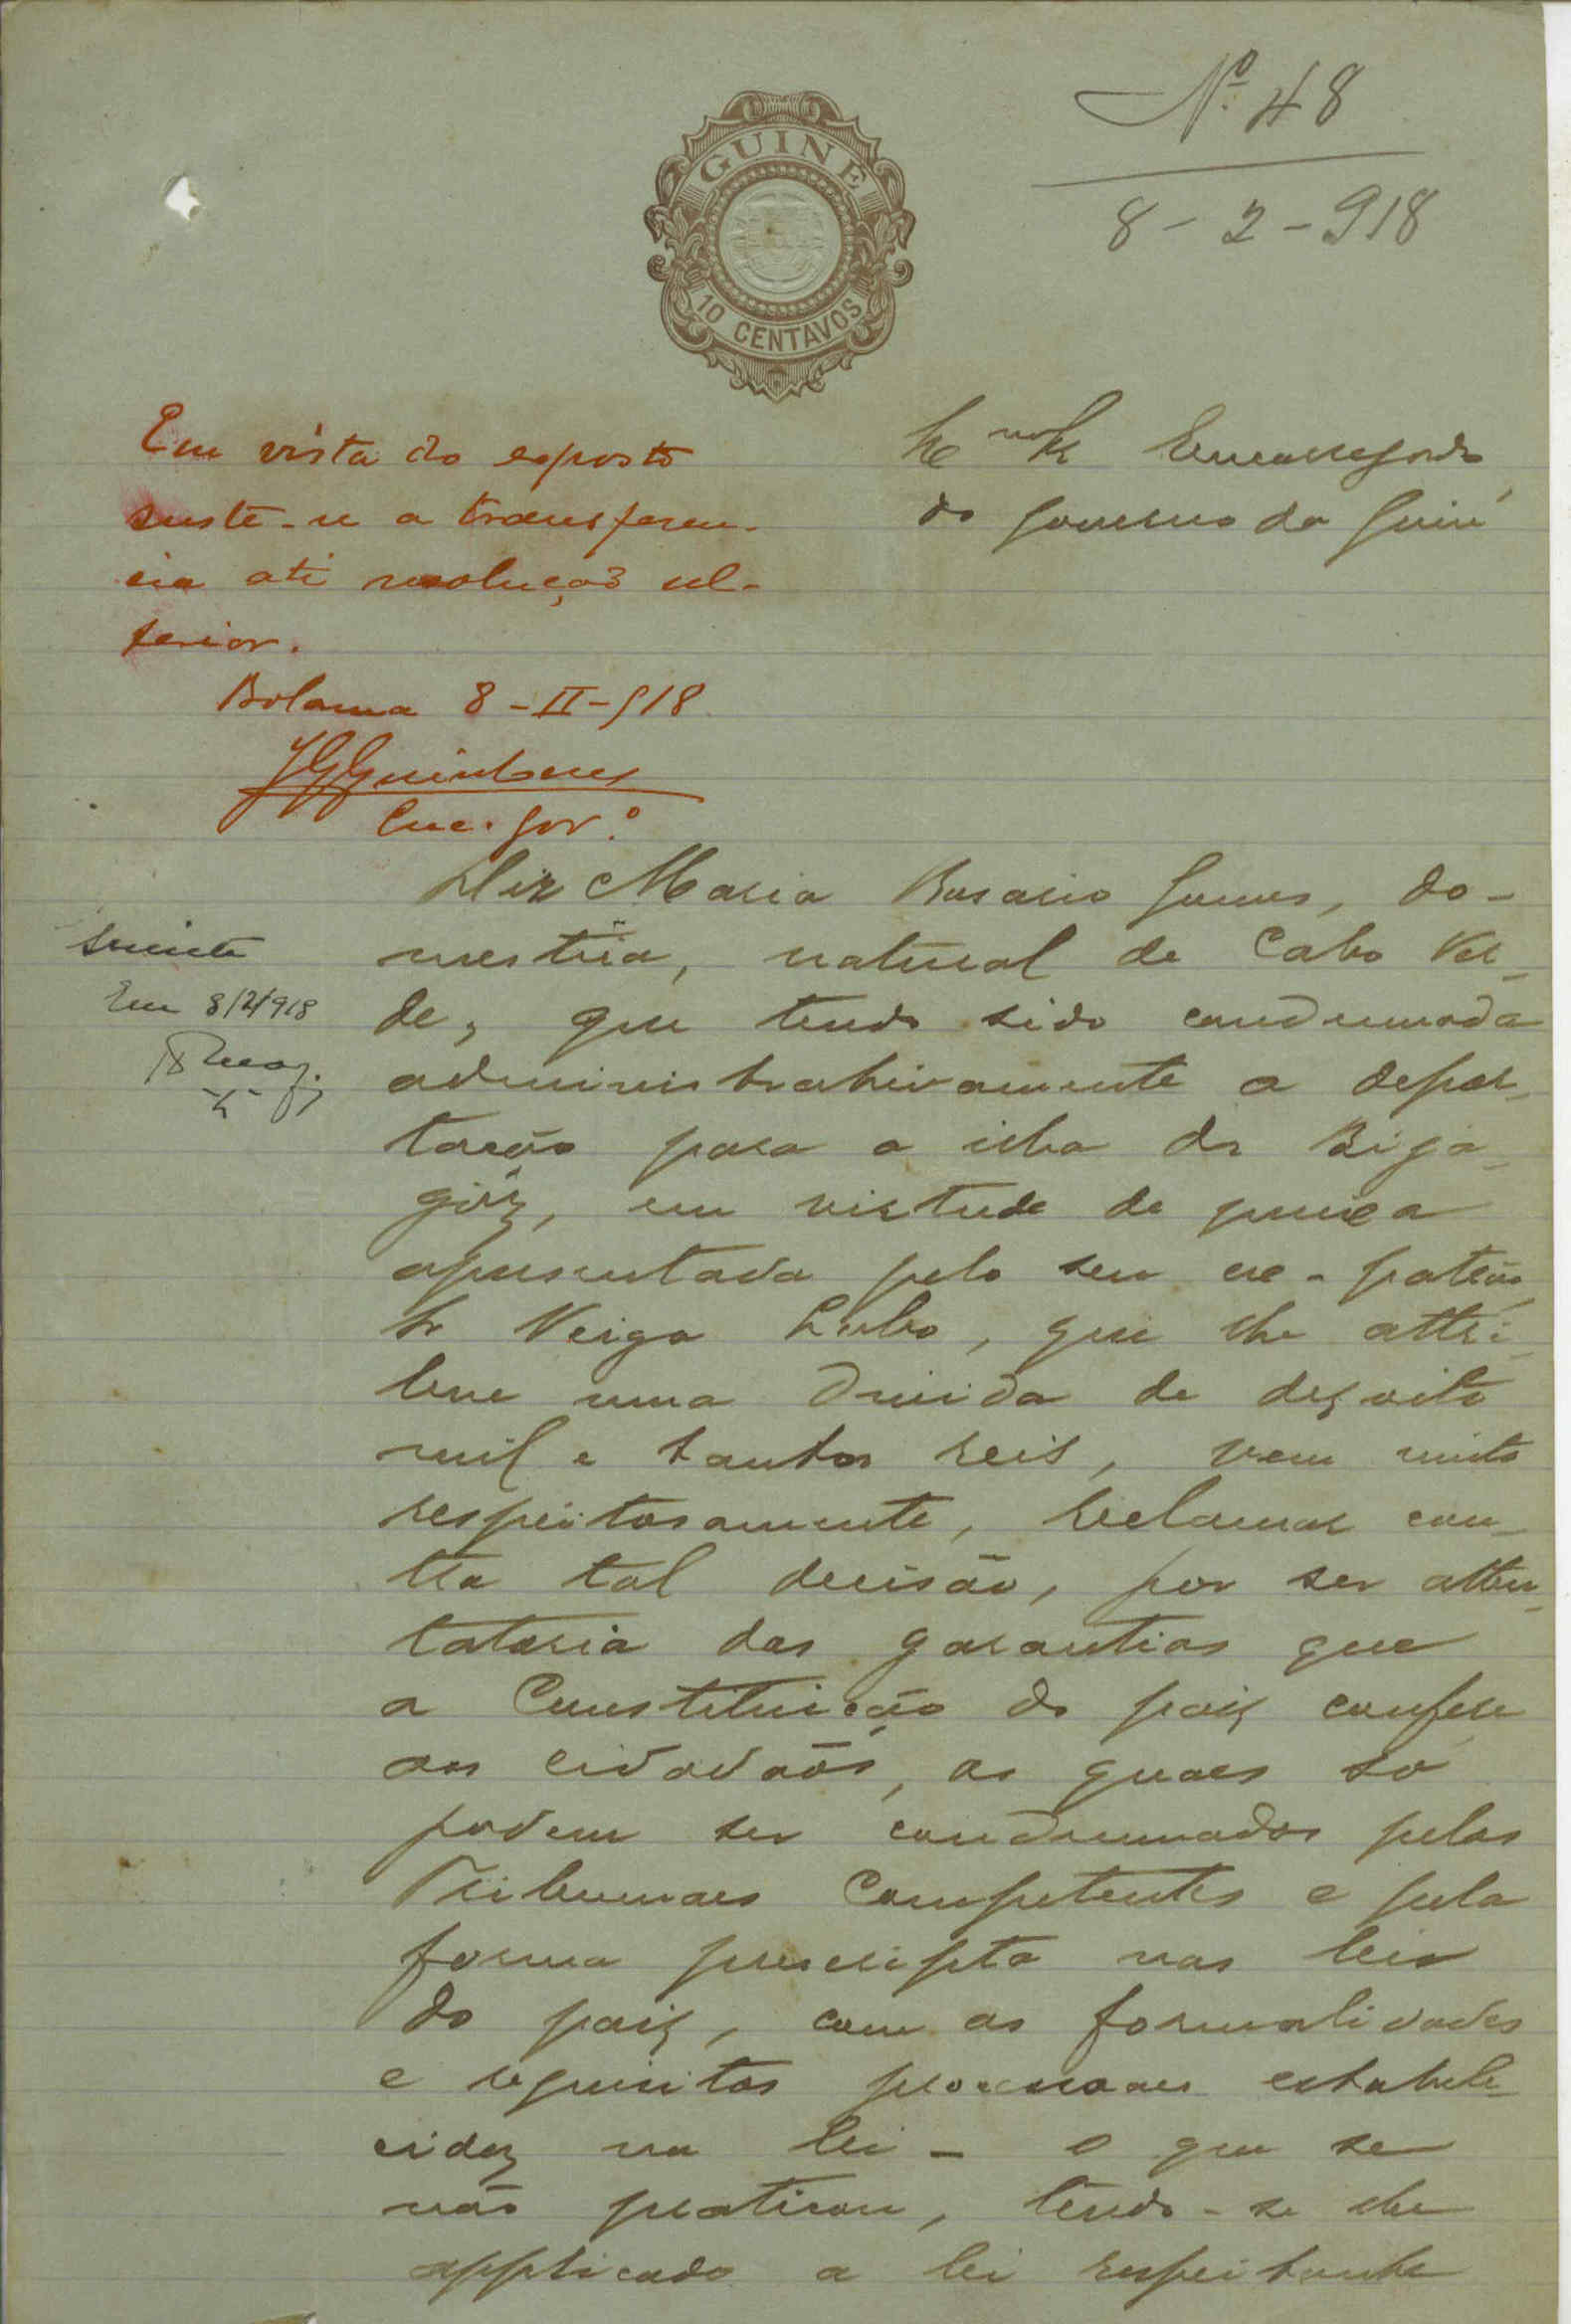 Nº 48
8-2-918
GUINE
10 CENTAVOS
Encarregado
do Governo da Guiné
Em vista do exposto
suste-se a transferen-
cia até resolução ul-
terior.
Bolama 8-II-918
Enc. Gov.º
Diz Maria Rosario Gomes, do-
mestica, natural de Cabo Ver-
de, que tendo sido condemnada
administrativamente a depor-
tação para a ilha de Bija-
góz, em virtude de queixa
apresentada pelo seu ex-patrão
Sr Veiga Lobo, que lhe attri-
bue uma divida de dezoito
mil e tantos reis, vem muito
respeitosamente, reclamar con-
tra tal decisão, por ser atten-
tatoria das garantias que
a Constituição do paiz confere
aos cidadãos, os quaes só
podem ser condemnados pelos
Tribunaes Competentes e pela
forma prescripta nas leis
do paiz, com as formalidades
e requisitos processoaes estabele-
cidoz na lei - o que se
não praticou, tendo-se lhe
applicado a lei respeitante
Em 8/2/918